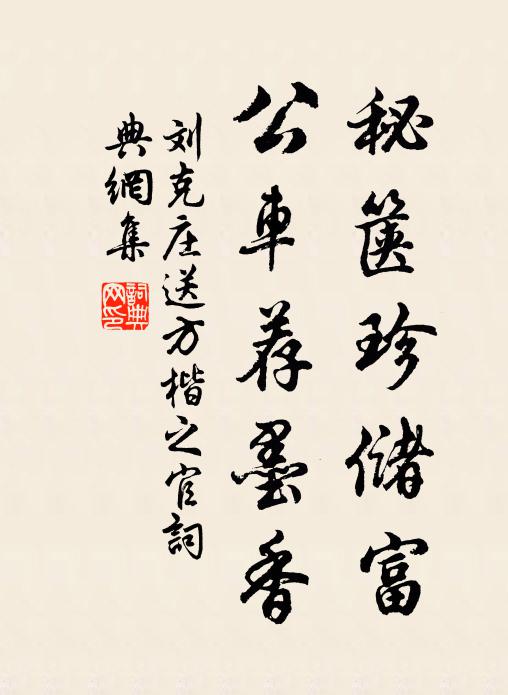 秘箧珍储富
公車荐墨香
刘克庄送方楷之官詞
典網集
詞典网印